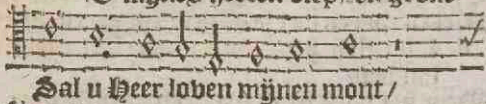 Sal u Heer loven mijnen mont /